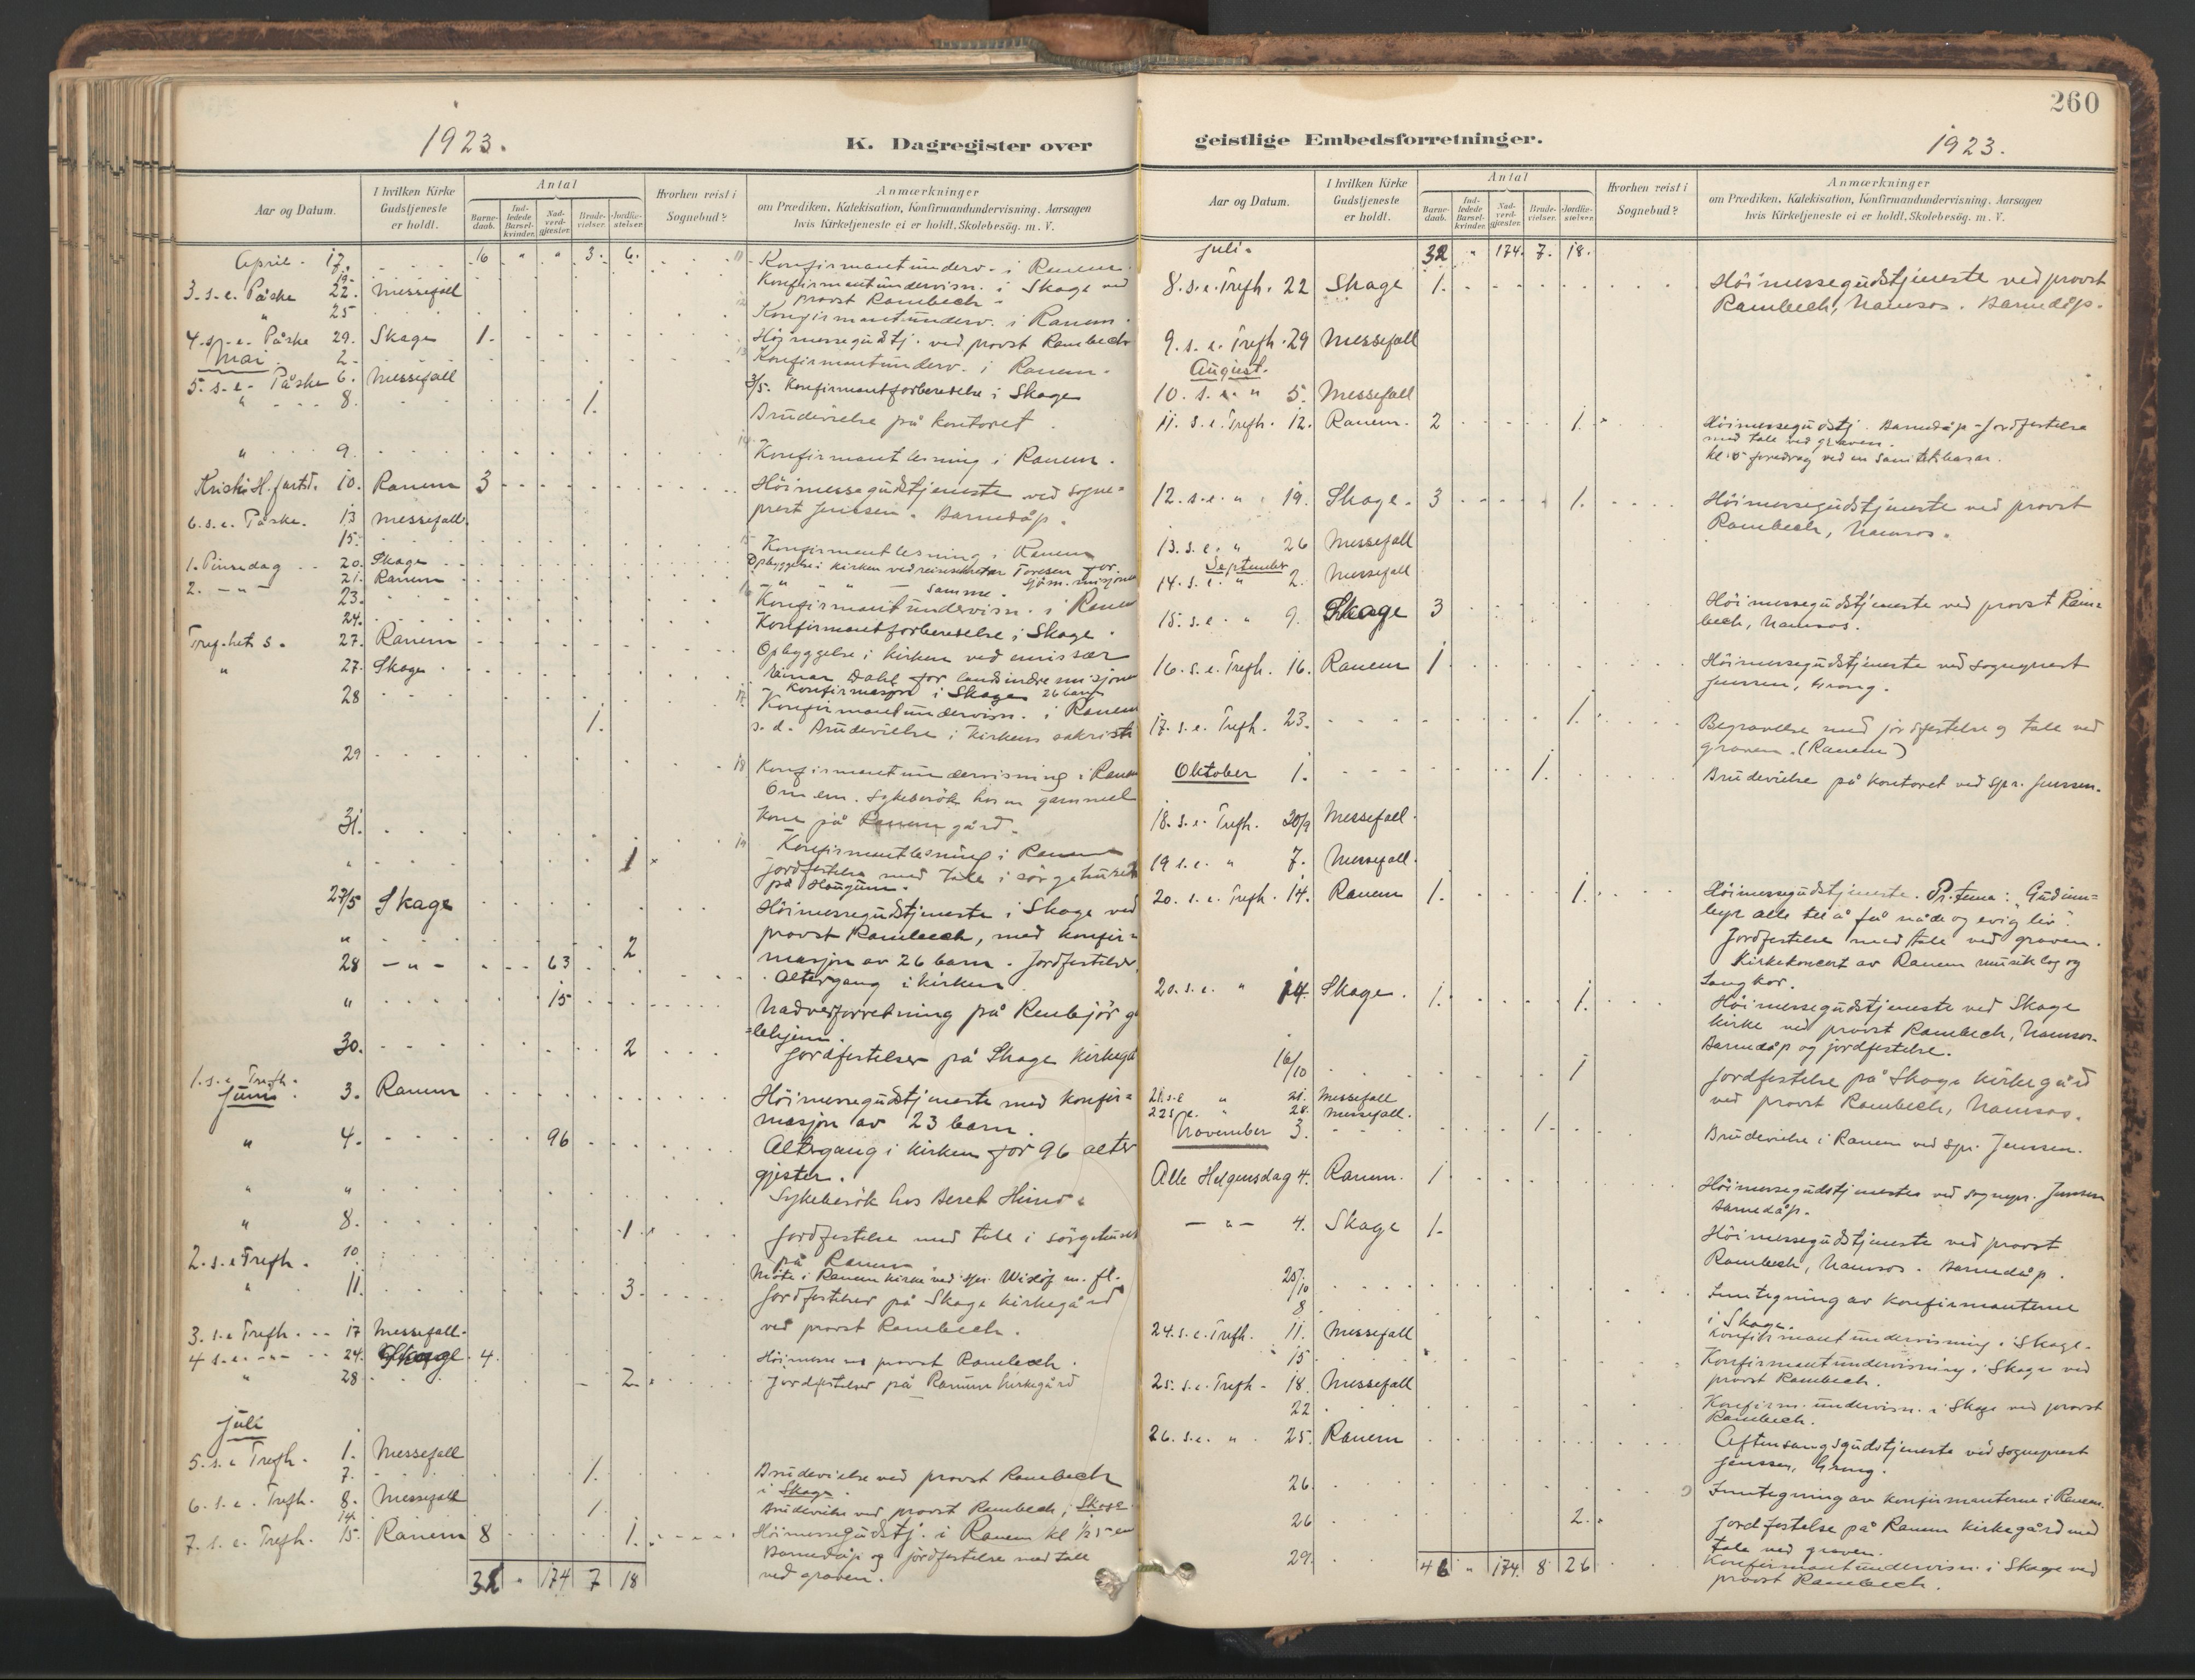 260
1923.
K. Dagregister over
Aar og Datum.
I hvilken Kirke Gudstjeneste er holdt.
Antal
Barne-daab.
Ind-ledede Barsel-kvinder.
Nad-verd-gjæster.
Brude-vielser.
Jordfæ-stelser.
Hvorhen reist i Sognebud?
Anmærkninger
om Prædiken, Katekisation, Konfirmandundervisning. Aarsagen
hvis Kirketjeneste ei er holdt, Skolebesøg. m. V.
April. 17. 16 " " 3. 6. 11 Konfirmantunderv. i Ranem.
19. Konfirmantundervisn. i Skage ved
3. s. e. Påske 22. Messefall provst Rambech.
" 25 12 Konfirmantunderv. i Ranem.
4. s. e. Påske 29. Skage 1. Höimessegudstj. ved provst Rambech
Mai 2. 13 Konfirmantunderv. i Ranem.
5. s. e. Påske 6. Messefall 3/5. Konfirmantforberedelse i Skage
" 8. 1. Brudevielse på kontoret.
" 9. 14 Konfirmantlesning i Ranem.
Kristi H. fartsd. 10. Ranem 3 Höimessegudstjeneste ved sogne=
prest Jenssen. Barnedåp.
6. s. e. Påske. 13 Messefall.
15. 15 Konfirmantlesning i Ranem
1. Pinsedag 20. Skage Opbyggelse i kirken ved reisesekretær Toresen for
2. - " - 21. Ranem - " - " - samme. sjöm. misjonen
23. 16 Konfirmantundervisn. i Ranem
24. Konfirmantforberedelse i Skage.
Tref.hets s. 27. Ranem Opbyggelse i kirken ved emissær
" 27. Skage Einar Dahl for landsindremisjonen
Konfirmasjon i Skage 26 barn
28 17 Konfirmantundervisn. i Ranem
1. s. d. Brudevielse i kirkens sakristi
29 18 Konfirmantundervisning i Ranem
Om em. sykebesök hos en gammel
kone på Ranem gård.
31. 19 Konfirmantlesning i Ranem
" 1 Jordfestelse med tale i sörgehuset
på Haugum.
27/5 Skage Höimessegudstjeneste i Skage ved
provst Rambech, med konfir=
" 2 masjon av 26 barn. Jordfestelser
28 - " - 63 Altergang i kirken
" 15 Nadverforretning på Renbjör ga
=lehjem.
30. 2 Jordfestelser på Skage kirkegå
1. s. e. Trefh.
Juni 3. Ranem Höimessegudstjeneste med konfir=
masjon av 23 barn.
" 4. 96 Altergang i kirken for 96 alter
gjester.
" " Sykebesök hos Beret Himo.
" 8. 1 Jordfestelse med tale i sörgehuset
på Ranem
2. s. e. Trefh. 10 Möte i Ranem kirke ved spr. Widöj m. fl.
" 11. 3 Jordfestelser på Skage kirkegård
ved provst Rambech.
3. s. e. Trefh. 17 Messefall.
4 s. e. - " - 24. Skage 4. Höimesse ved provst Rambech.
" 28 2 Jordfestelser på Ranem kirkegård
Juli
5. s. e. Trefh. 1. Messefall
7. 1. Brudevielse ved provst Rambech
i Skage.
6. s. e. Trefh. 8. Messefall
14. 1. Brudevielse ved provst Rambech, i Skage
7. s. e. Trefh. 15. Ranem 8 1. Höimessegudstj. i Ranem kl ½5 em
Barnedåp og jordfestelse med tale
32 " 174 7 18 ved graven.
geistlige Embedsforretninger.
1923.
Aar og Datum.
I hvilken Kirke Gudstjeneste er holdt.
Antal
Barne-daab.
Ind-ledede Barsel-kvinder.
Nad-verd-gjæster.
Brude-vielser.
Jordfæ-stelser.
Hvorhen reist i Sognebud?
Anmærkninger
om Prædiken, Katekisation, Konfirmandundervisning. Aarsagen
hvis Kirketjeneste ei er holdt, Skolebesøg. m. V.
Juli. 32 " 174. 7. 18.
8. s. e. Trefh. 22 Skage 1. Höimessegudstjeneste ved provst
Rambech, Namsos. Barnedåp.
9. s. e. Trefh. 29 Messefall
August.
10. s. e. " 5. Messefall
11. s. e. Trefh. 12. Ranem. 2 1. Höimessegudstj. Barnedåp - Jordfestelse
med tale ved graven.
Kl. 5 foredrag ved en sanitetsbasar.
12. s. e. " 19. Skage. 3 1. Höimessegudstjeneste ved provst
Rambech, Namsos.
13. s. e. " 26 Messefall
September
14. s. e. " 2. Messefall
15. s. e. " 9. Skage 3 Höimessegudstjeneste ved provst Ram=
bech, Namsos.
16. s. e. Trefh. 16. Ranem 1 Höimessegudstjeneste ved sogneprest
Jenssen, Grong.
17. s. e. Trefh. 23. 1. Begravelse med jordfestelse og tale ved
graven. (Ranem)
Oktober 1. 1. Brudevielse på kontoret ved spr. Jenssen.
18. s. e. Trefh. 30/9 Messefall.
19 s. e. " 7. Messefall.
20. s. e. Trefh. 14. Ranem 1. 1. Höimessegudstjeneste. Pr. tema: "Gud inn=
byr alle til å få nåde og evig liv".
Jordfestelse med tale ved graven.
Kirkekoncert av Ranem musiklag og
Sangkor.
20. s. e. " 14. Skage. 1. 1. Höimessegudstjeneste ved Skage
kirke ved provst Rambech, Namsos.
Barnedåp og jordfestelse.
16/10 1 Jordfestelse på Skage kirkegård
ved provst Rambech, Namsos.
21. s. e " 21. Messefall
22 s. e. " 28. Messefall.
November 3. 1 Brudevielse i Ranem ved spr. Jenssen.
Alle Helgensdag 4. Ranem. 1 Höimessegudstjeneste ved sognepr. Jenssen
Barnedåp.
- " - 4. Skage 1. Höimessegudstjeneste ved provst
Rambech, Namsos. Barnedåp.
25/10 Inntegning av konfirmanterne
i Skage.
8 Konfirmantundervisning i Skage.
24. s. e. Trefh. 11. Messefall
15 Konfirmantundervisning i Skage ved
provst Rambech.
25. s. e. Trefh. 18. Messefall
22 Konfirm. undervisn. i Skage ved provst
Rambech.
26. s. e. " 25. Ranem Aftensangsgudstjeneste ved sogneprest
Jenssen, Grong.
26. Inntegning av konfirmanterne i Ranem.
26 2. Jordfestelse på Ranem kirkegård med
tale ved graven.
29. Konfirmantundervisn. i Skage ved
46 " 174. 8 26 provst Rambech.